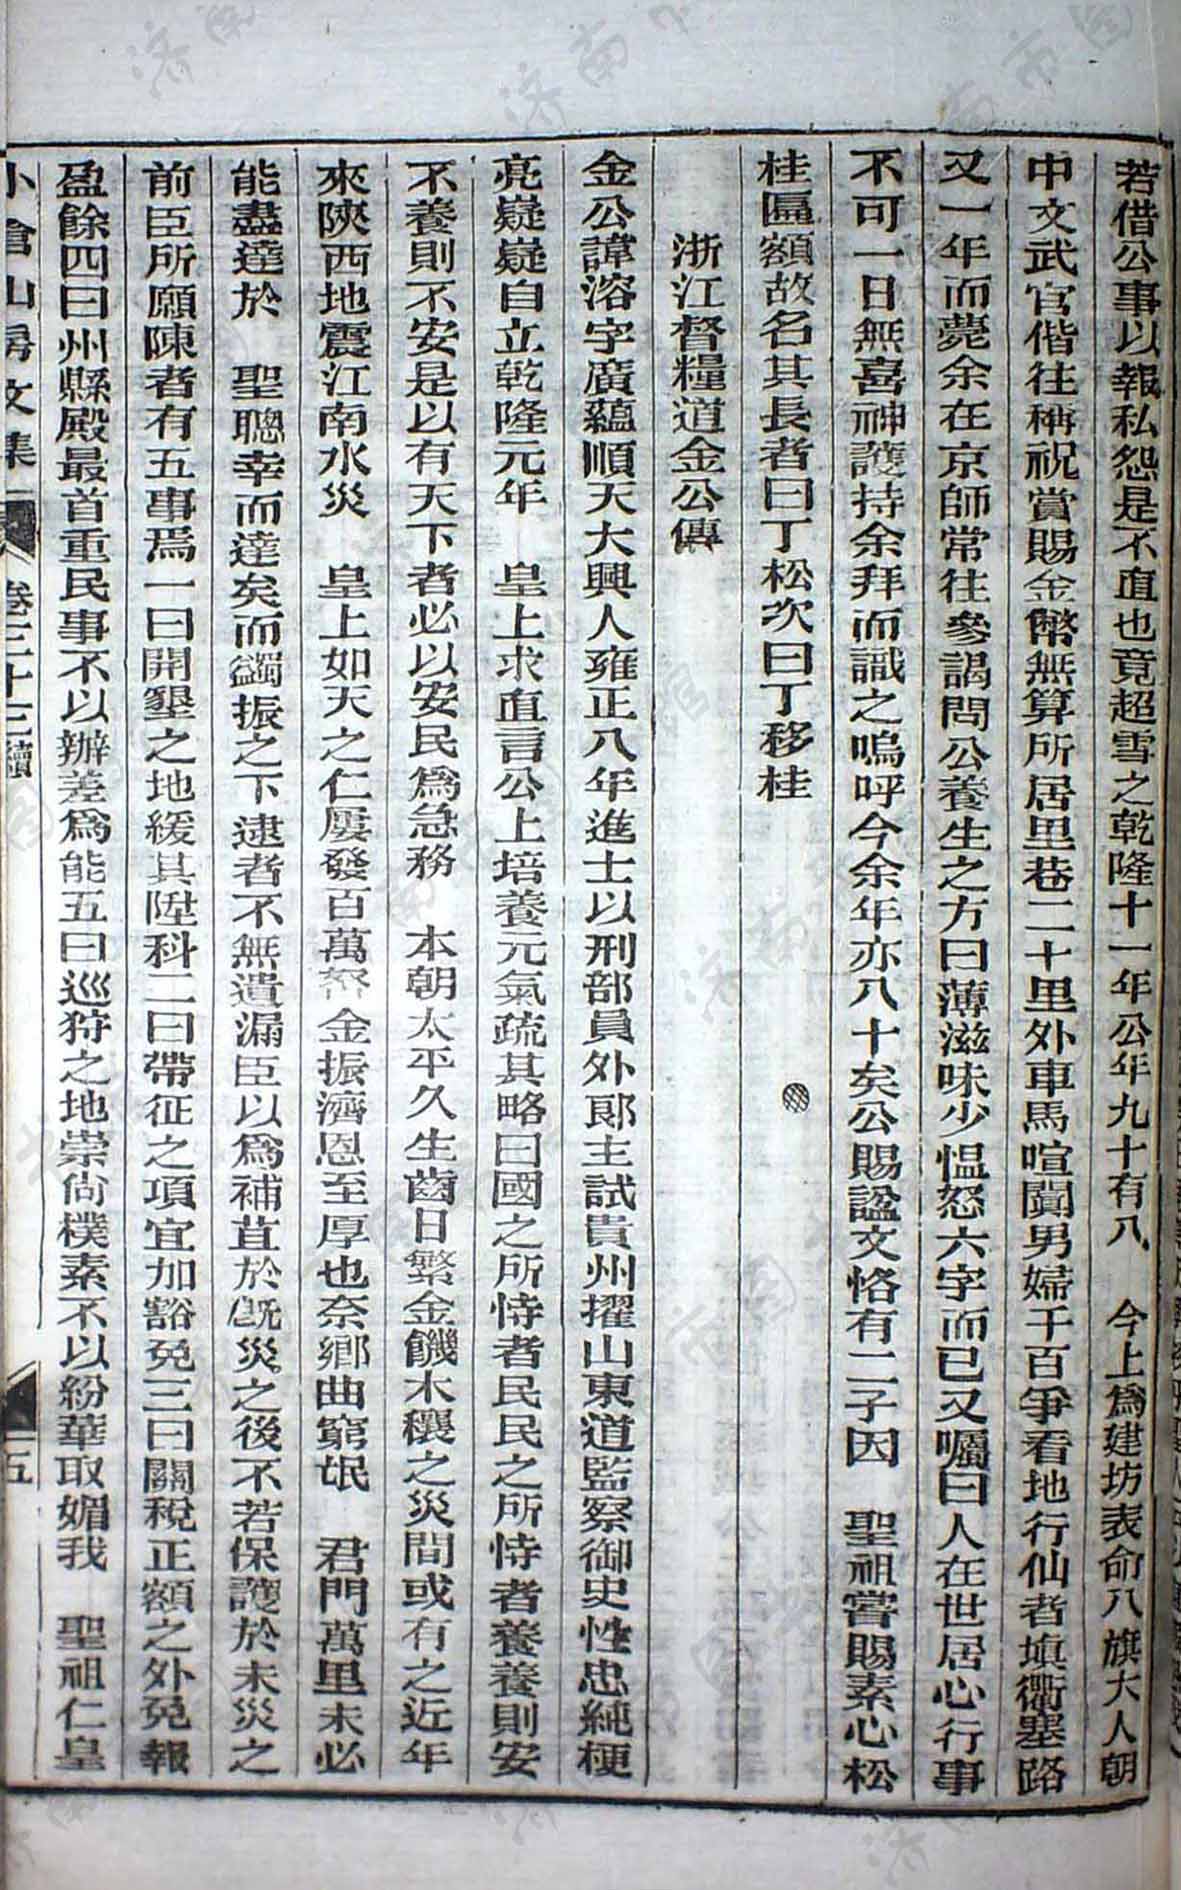 若借公事以報私怨是不直也竟超雪之乾隆十一年公年九十有八　今上爲建坊表命八旗大人朝
中文武官偕往稱祝賞賜金幣無算所居里巷二十里外車馬喧闐男婦千百爭看地行仙者塡衢塞路
又一年而薨余在京師常往參謁問公養生之方曰薄滋味少慍怒六字而已又囑曰人在世居心行事
不可一日無喜神護持余拜而識之嗚呼今余年亦八十矣公賜諡文恪有二子因　聖祖嘗賜素心松
桂匾額故名其長者曰丁松次曰丁移桂
浙江督糧道金公傳
金公諱溶字廣蘊順天大興人雍正八年進士以刑部員外郎主試貴州擢山東道監察御史性忠純梗
亮嶷嶷自立乾隆元年　皇上求直言公上培養元氣疏其略曰國之所恃者民民之所恃者養養則安
不養則不安是以有天下者必以安民爲急務　本朝太平久生齒日繁金饑木穰之災間或有之近年
來陝西地震江南水災　皇上如天之仁屢發百萬帑金振濟恩至厚也奈鄉曲窮氓　君門萬里未必
能盡達於　聖聰幸而達矣而蠲振之下逮者不無遺漏臣以爲補苴於旣災之後不若保護於未災之
前臣所願陳者有五事焉一曰開墾之地緩其陞科二曰帶征之項宜加豁免三曰關稅正額之外免報
盈餘四曰州縣殿最首重民事不以辦差爲能五曰巡狩之地崇尙樸素不以紛華取媚我　聖祖仁皇
小倉山房文集
卷三十三續
五